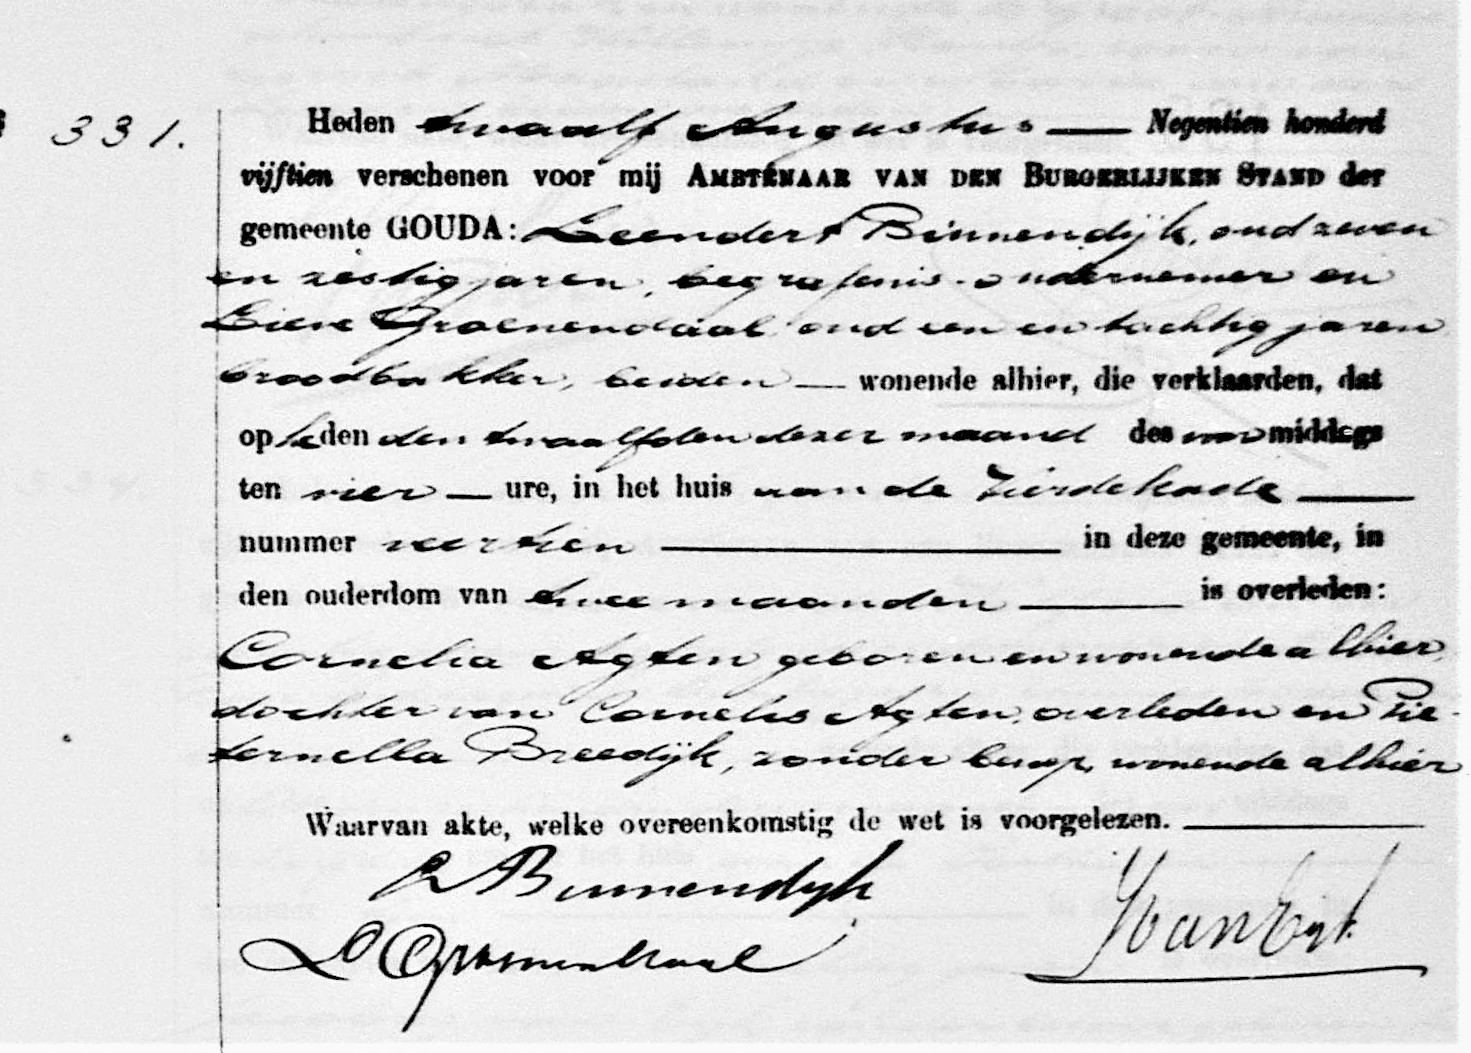 331.
Heden twaalf Augustus Negentien honderd
vijftien verschenen voor mij AMBTENAAR VAN DEN BURGERLIJKEN STAND der
gemeente GOUDA: Leendert Binnendijk, oud zeven
en zestig jaren, begrafenis-ondernemer en
Groenendaal oud een en tachtig jaren
broodbakker, beiden wonende alhier, die verklaarden, dat
op heden den twaalfden dezer maand des voormiddags
ten vier ure, in het huis aan de Turfsingel
nummer veertien in deze gemeente, in
den ouderdom van twee maanden is overleden:
Cornelia Agten geboren en wonende alhier,
dochter van Cornelis Agten, overleden en Pie-
ternella Breedijk, zonder beroep, wonende alhier
Waarvan akte, welke overeenkomstig de wet is voorgelezen.
L Binnendijk
Groenendaal